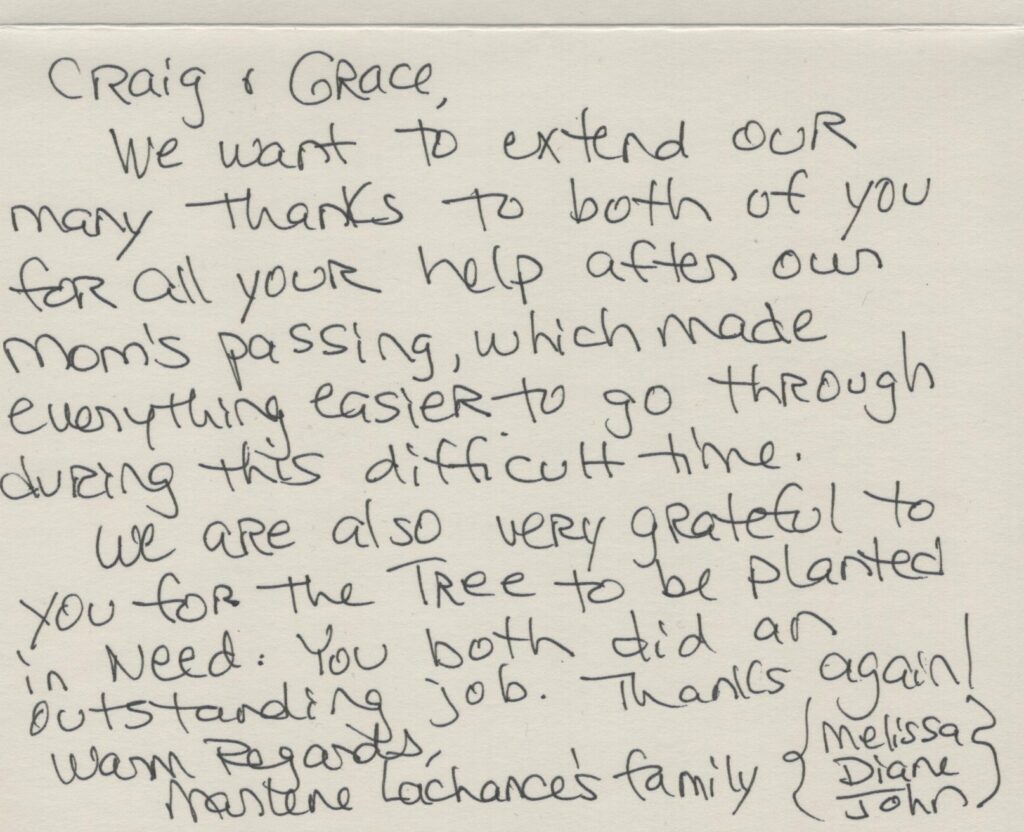 Craig & Grace,
We want to extend our
many thanks to both of you
for all your help after our
Mom's passing, which made
everything easier to go through
during this difficult time.
We are also very grateful to
you for the Tree to be planted
in Need. You both did an
outstanding job. Thanks again!
Warm Regards,
Marlene Lachance's family { Melissa
Diane
John }